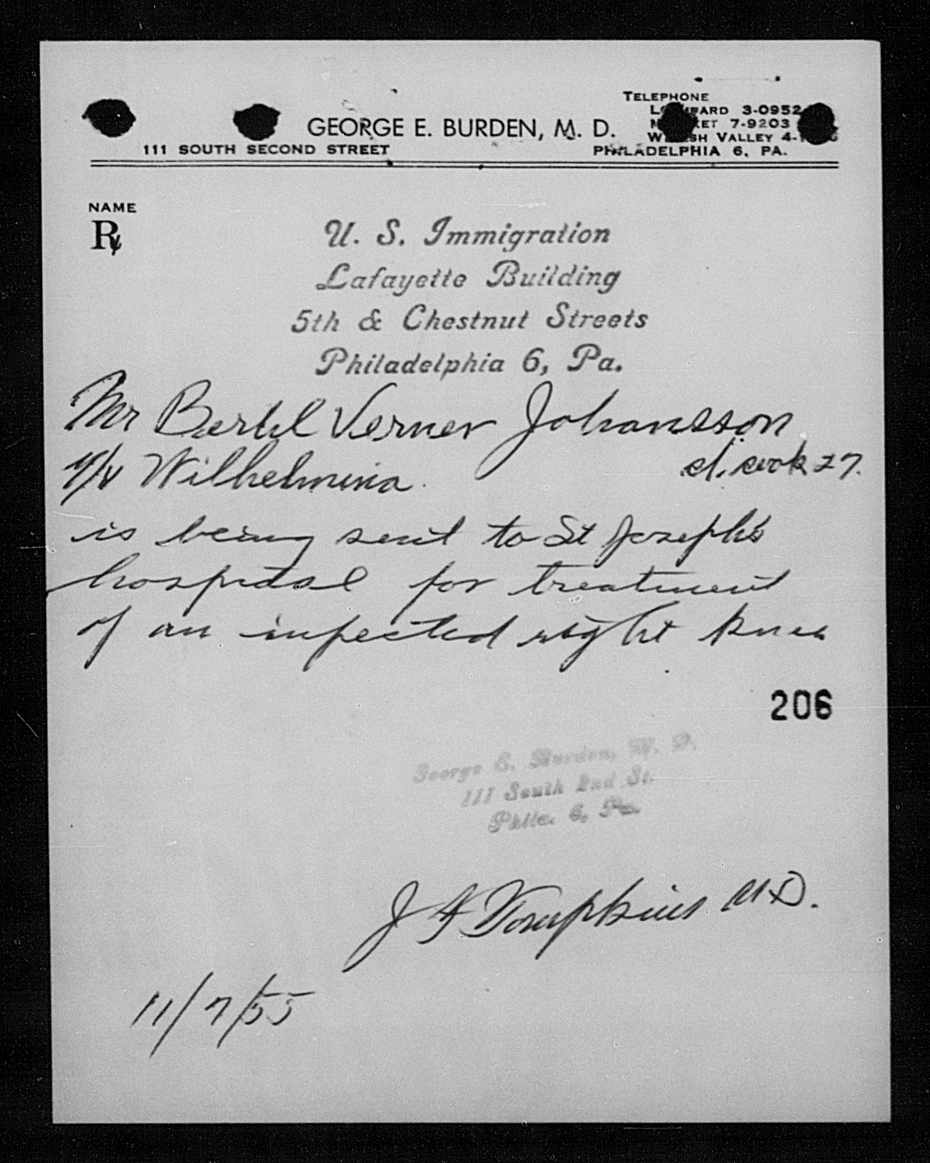 TELEPHONE
3-0952
7-9203
GEORGE E. BURDEN, M. D.
VALLEY
111 SOUTH SECOND STREET
PHILADELPHIA 6, PA.
NAME
Rx
U. S. Immigration
Lafayette Building
5th & Chestnut Streets
Philadelphia 6, Pa.
Mr Bertil Verner Johansson
M/V Wilhelmina. cook 27.
is being sent to St Joseph's
hospital for treatment
of an infected right knee
206
George E. Burden, M. D.
111 South 2nd St.
Phila. 6, Pa.
J F Tompkins M.D.
11/7/55